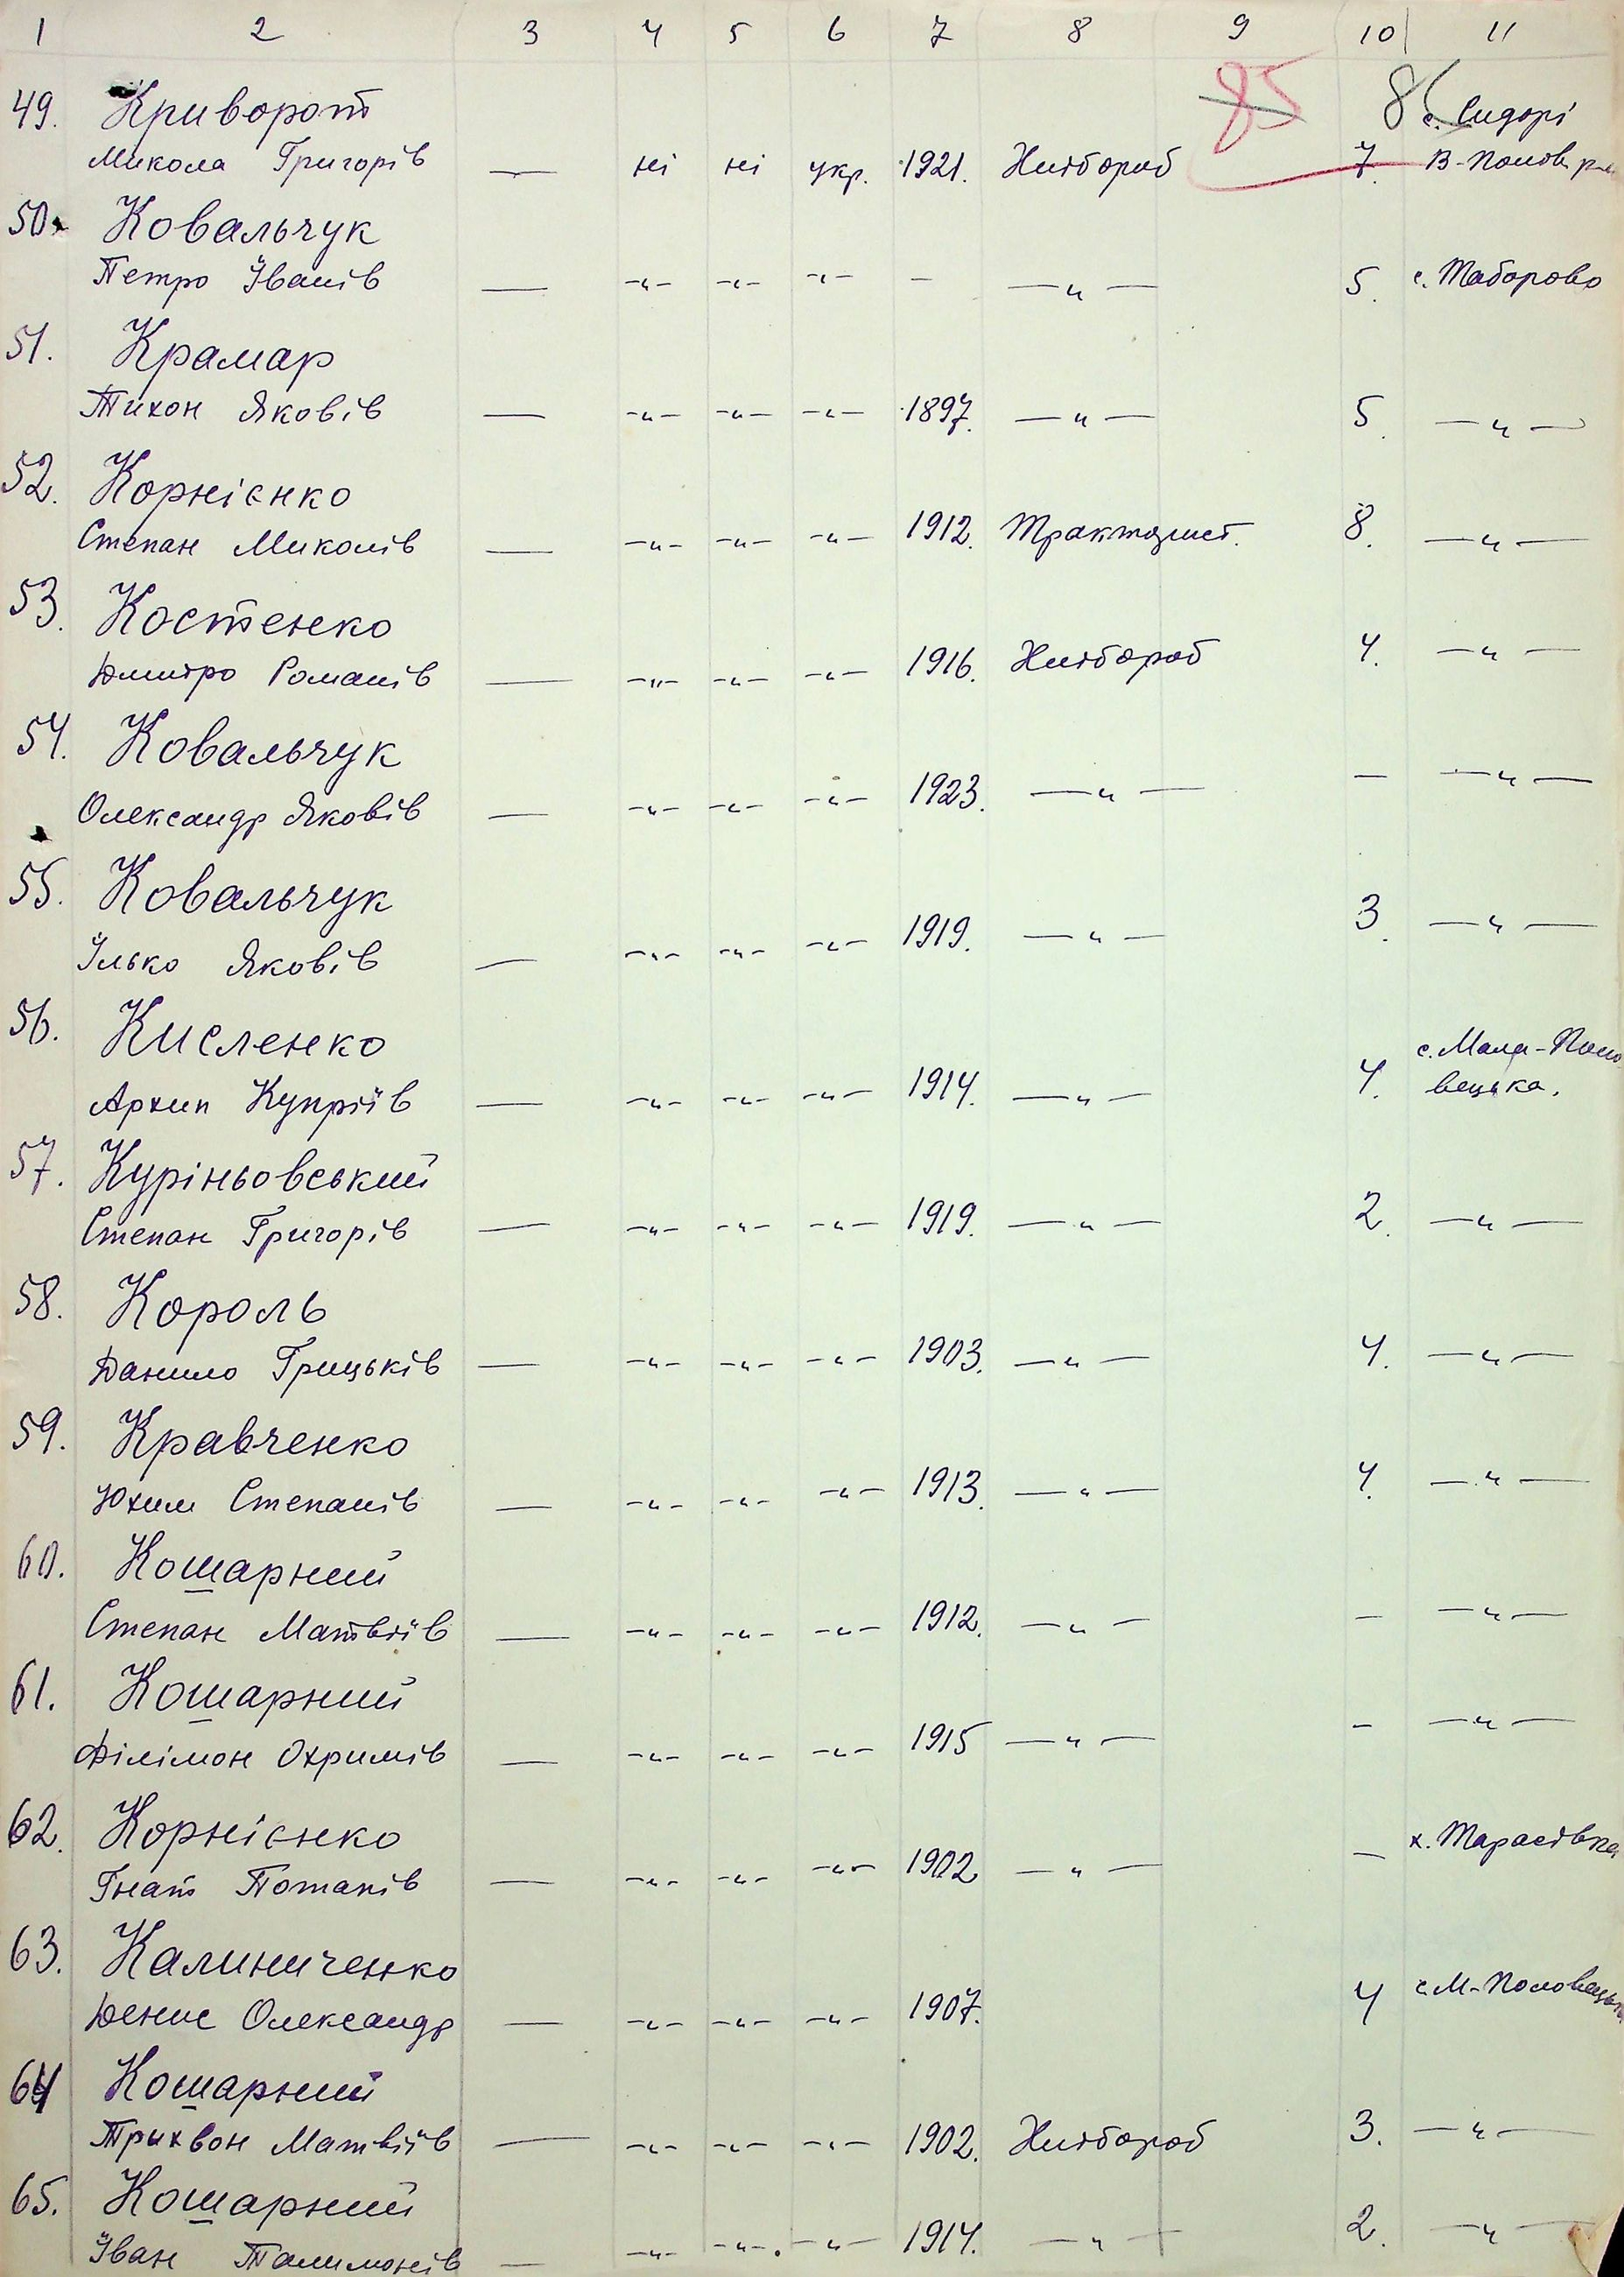 1 2 3 4 5 6 7 8 9 10 11
85 86
49. Криворот с. Сидорі
Микола Григорів — ні ні укр. 1921. Хлібороб 7. В-Полов. р-н
50. Ковальчук
Петро Іванів — -"- -"- -"- - —"— 5. с. Таборово
51. Крамар
Тихон Яковів — -"- -"- -"- 1897. —"— 5. —"—
52. Корнієнко
Степан Миколів — -"- -"- -"- 1912. Тракторист. 8. —"—
53. Костенко
Дмитро Романів — -"- -"- -"- 1916. Хлібороб 4. —"—
54. Ковальчук
Олександр Яковів — -"- -"- -"- 1923. —"— — —"—
55. Ковальчук
Ілько Яковів — -"- -"- -"- 1919. —"— 3. —"—
56. Кисленко с. Мала-Поло
Архип Купріїв — -"- -"- -"- 1914. —"— 4. вецька.
57. Куріньовський
Степан Григорів — -"- -"- -"- 1919. —"— 2. —"—
58. Король
Данило Грицьків — -"- -"- -"- 1903. —"— 4. —"—
59. Кравченко
Юхим Степанів — -"- -"- -"- 1913. —"— 4. —"—
60. Кошарний
Степан Матвіїв — -"- -"- -"- 1912. —"— — —"—
61. Кошарний
Філімон Охримів — -"- -"- -"- 1915 —"— - —"—
62. Корнієнко х. Тарасівка
Гнат Потапів — -"- -"- -"- 1902 —"— —
63. Калиниченко
Денис Олександр — -"- -"- -"- 1907. 4 с. М-Половецька
64 Кошарний
Трихвон Матвіїв — -"- -"- -"- 1902. Хлібороб 3. —"—
65. Кошарний
Іван Талимонів — -"- -"-. -"- 1914. —"— 2. —"—